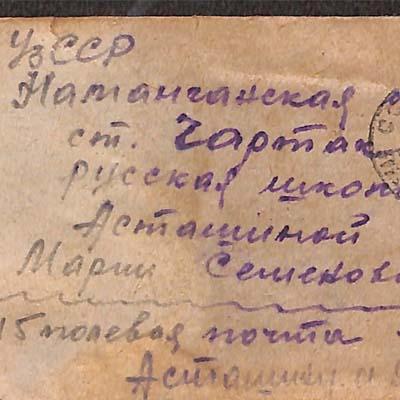 УзССР
Наманганская
ст. Чартак
русская школ
Асташиной
Марии Семенов
15 полевая почта
Асташин